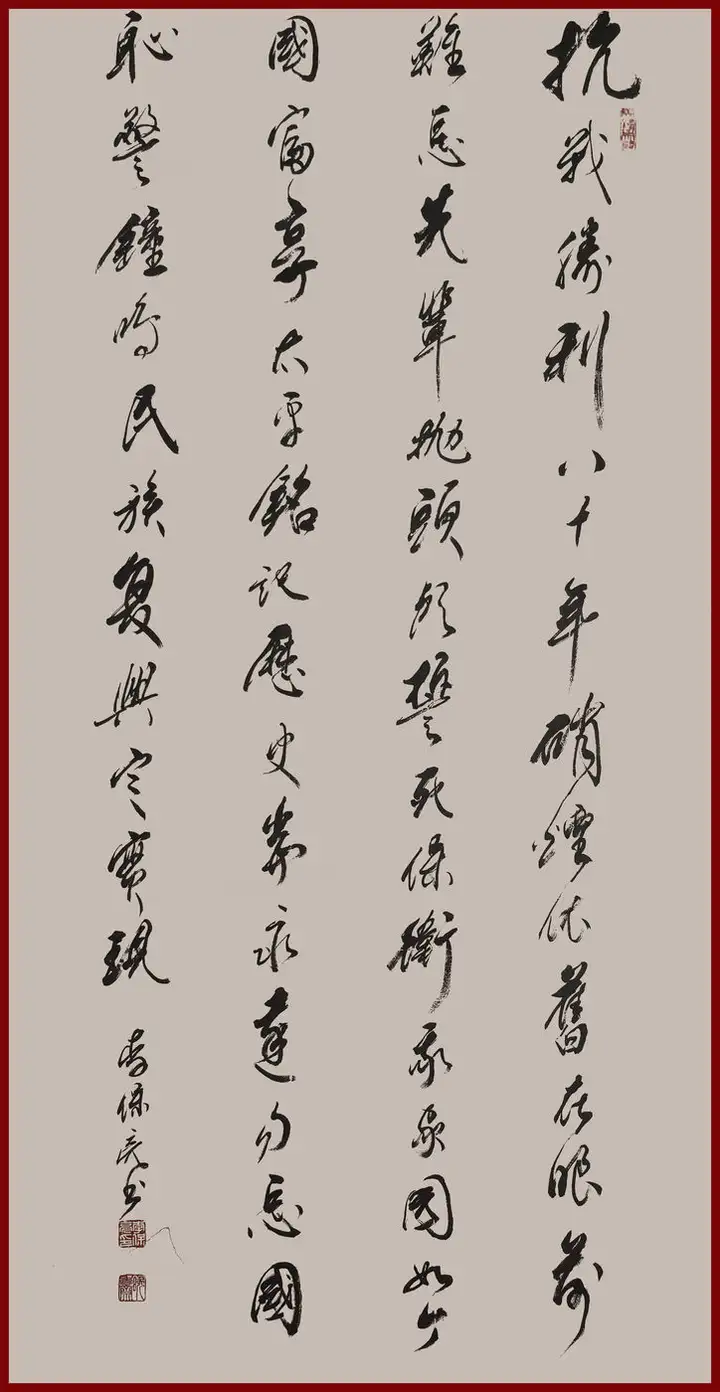 抗戰勝利八十年硝煙依舊在眼前
難忘先輩拋頭顱誓死保衛我家國如今
國富享太平銘記歷史當永遠勿忘國
恥警鐘鳴民族复興定實現
李保亮书